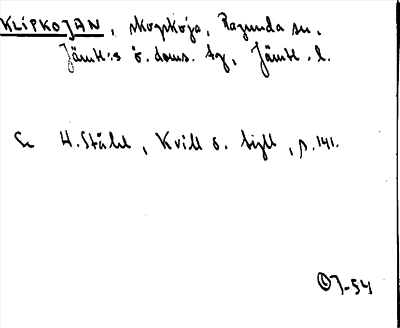 KLIPKOJAN, skogskoja, Ragunda sn.
Jämtl:s ö. doms. tg, Jämtl. l.
Se H. Ståhl, Kvill o. tjäll, p. 141.
J-54